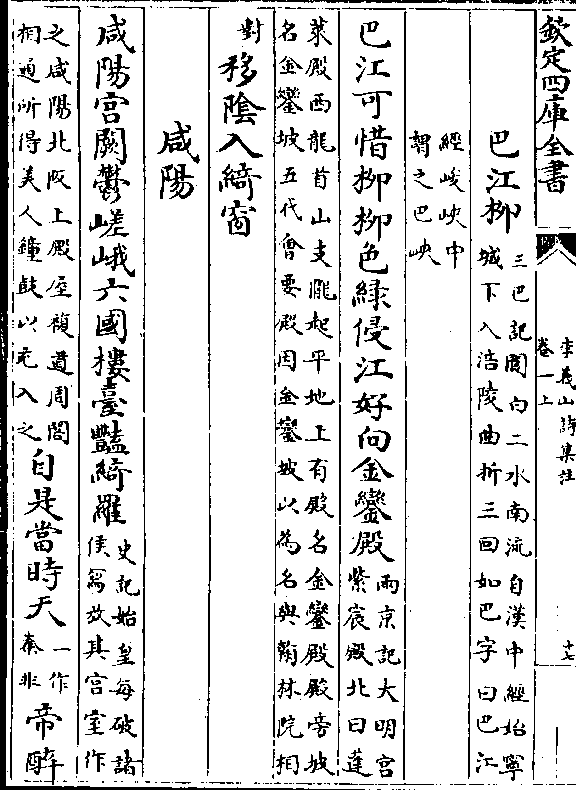 欽定四庫全書
李義山詩集注
卷一上
十七
巴江柳
三巴記閬白二水南流自漢中經始寧
城下入涪陵曲折三回如巴字曰巴江
經峻峽中
謂之巴峽
巴江可惜柳柳色綠侵江好向金鑾殿
兩京記大明宫
紫宸殿北曰蓬
萊殿西龍首山支隴起平地上有殿名金鑾殿殿旁坡
名金鑾坡五代會要殿因金鑾坡以為名與翰林院相
對
移陰入綺窗
咸陽
咸陽宫闕鬱嵯峨六國樓臺豔綺羅
史記始皇每破諸
侯寫放其宫室作
之咸陽北阪上殿屋複道周閣
相通所得美人鐘鼓以充入之
自是當時天
一作
秦非
帝醉